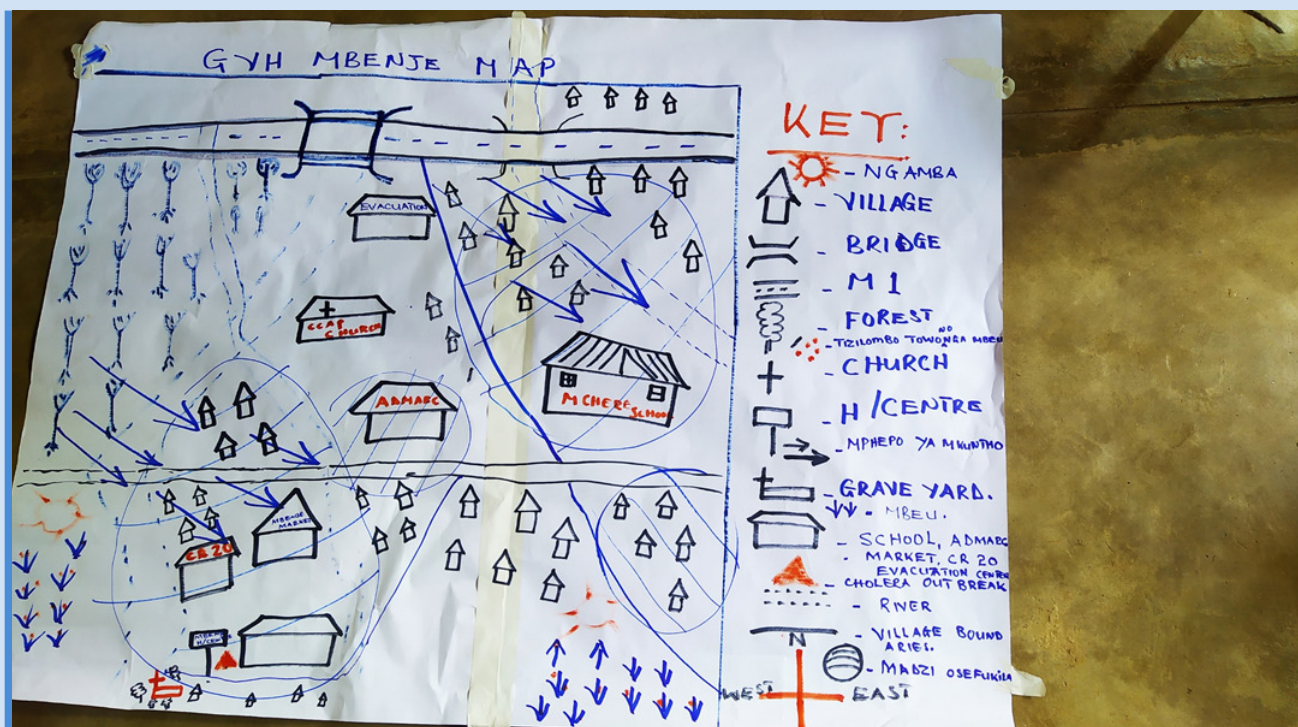 GVH MBENJE MAP
EVACUATION
CCAP
CHURCH
ADMARC
MCHERE SCHOOL
MARKET
CR 20
KEY:
- NGAMBA
- VILLAGE
- BRIDGE
- M1
- FOREST
NO
- TIZILOMBO TOWONGA MBEU
- CHURCH
- H/CENTRE
- MPHEPO YA MKUNTHO
- GRAVE YARD.
- MBEU.
- SCHOOL, ADMARC
- MARKET, CR 20
EVACUATION CENTER
- CHOLERA OUT BREAK
- RIVER
- VILLAGE BOUND
ARIES.
- MADZI OSEFUKILA
N
WEST
EAST